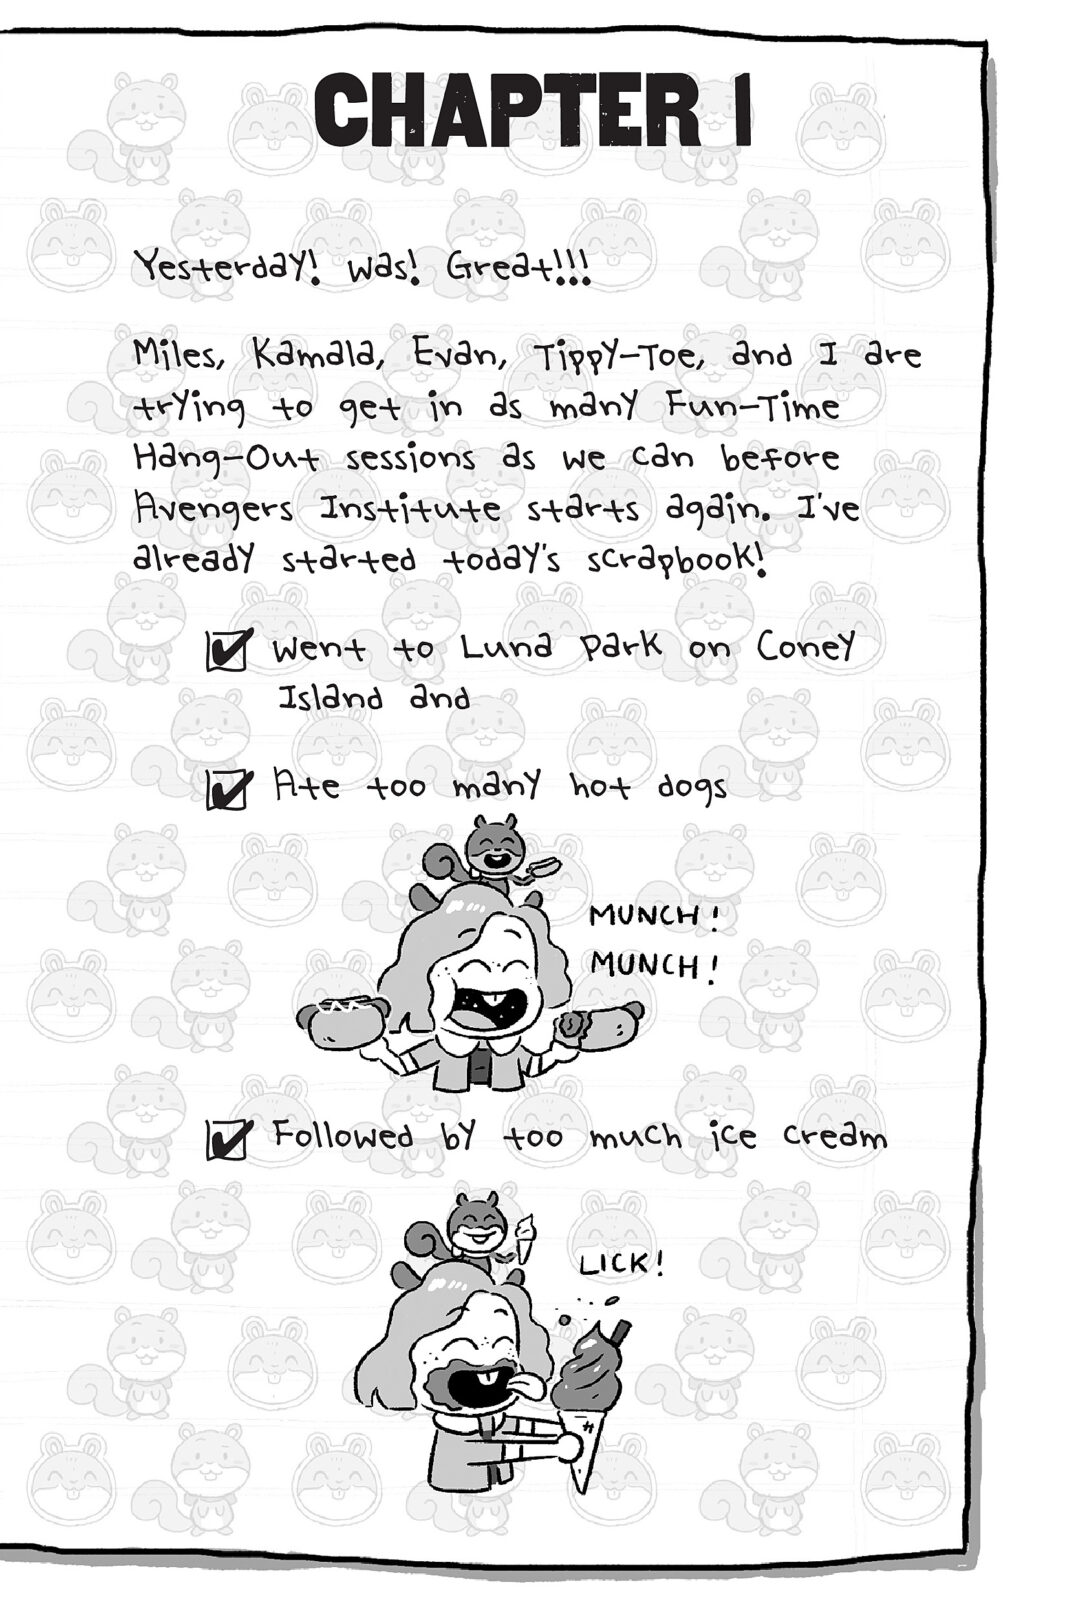 CHAPTER 1
Yesterday! Was! Great!!!
Miles, Kamala, Evan, Tippy-Toe, and I are
trying to get in as many Fun-Time
Hang-Out sessions as we can before
Avengers Institute starts again. I've
already started today's scrapbook!
Went to Luna Park on Coney
Island and
Ate too many hot dogs
MUNCH!
MUNCH!
Followed by too much ice cream
LICK!